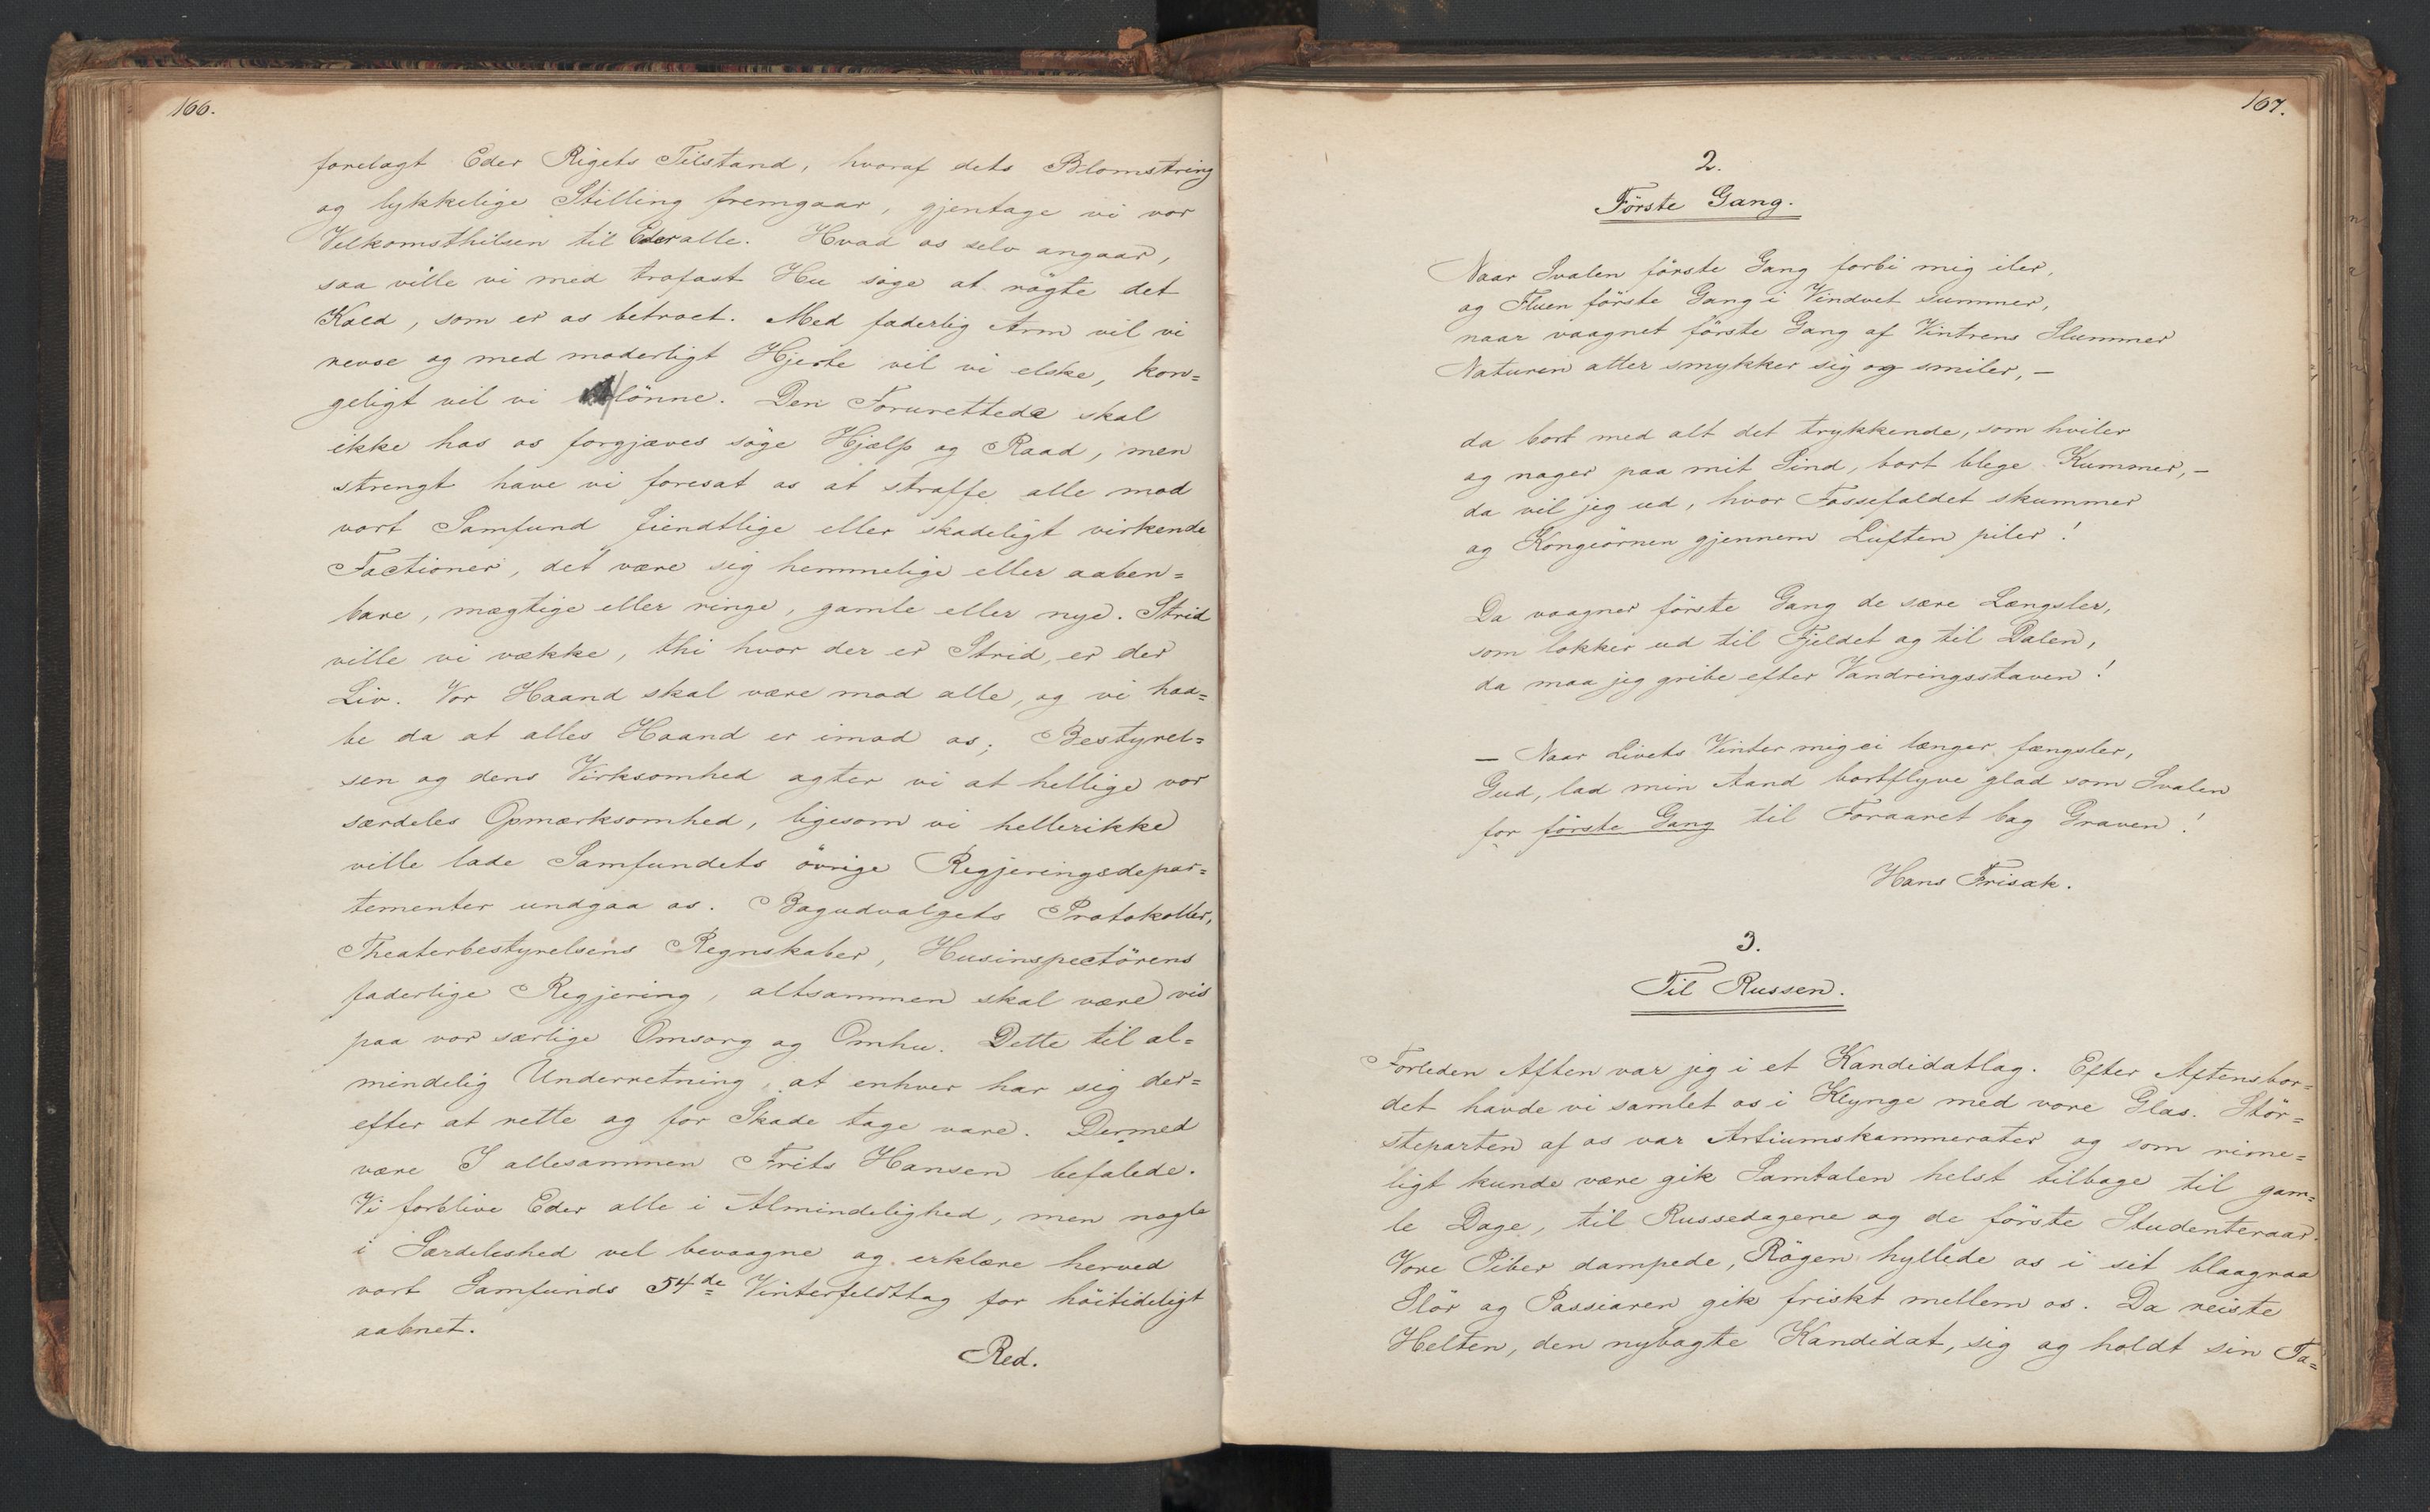 166.
forelagt Eder Rigets Tilstand, hvoraf dets Blomstring
og lykkelige Stilling fremgaar, gjentage vi vor
Velkomsthilsen til Eder alle. Hvad os selv angaar,
saa ville vi med trofast Hu søge at røgte det
Kald, som er os betroet. Med faderlig Arm vil vi
revse og med moderligt Hjerte vil vi elske, kon=
geligt vil vi lönne. Den Forurettede skal
ikke hos os forgjæves söge Hjælp og Raad, men
strengt have vi foresat os at straffe alle mod
vort Samfund fiendtlige eller skadeligt virkende
Factioner, det være sig hemmelige eller aaben=
bare, mægtige eller ringe, gamle eller nye. Strid
ville vi vække, thi hvor der er Strid, er der
Liv. Vor Haand skal være mod alle, og vi haa=
be da at alles Haand er imod os; Bestyrel=
sen og dens Virksomhed agter vi at hellige vor
særdeles Opmærksomhed, ligesom vi hellerikke
ville lade Samfundets övrige Regjeringsdepar=
tementer undgaa os. Bogudvalgets Protokoller,
Theaterbestyrelsens Regnskaber, Husinspectörens
faderlige Regjering, altsammen skal være vis
paa vor særlige Omsorg og Omhu. Dette til al=
mindelig Underretning, at enhver har sig der=
efter at rette og for Skade tage vare. Dermed
være I allesammen Frits Hansen befalede.
Vi forblive Eder alle i Almindelighed, men nogle
i Særdeleshed vel bevaagne og erklære herved
vort Samfunds 54de Vinterfeldttog for höitideligt
aabnet.
Red.
167.
2.
Förste Gang.
Naar Svalen förste Gang forbi mig iler,
og Fluen förste Gang i Vinduet summer,
naar vaagnet förste Gang af Vintrens Slummer
Naturen atter smykker sig og smiler, –
da bort med alt det trykkende, som hviler
og nager paa mit Sind, bort blege Kummer, –
da vil jeg ud, hvor Fossefaldet skummer
og Kongeörnen gjennem Luften piler!
Da vaagner förste Gang de sære Længsler,
som lokker ud til Fjeldet og til Dalen,
da maa jeg gribe efter Vandringsstaven!
– Naar Livets Vinter mig ei længer fængsler,
Gud, lad min Aand bortflyve glad som Svalen
for förste Gang til Foraaret bag Graven!
Hans Frisak.
3.
Til Russen.
Forleden Aften var jeg i et Kandidatlag. Efter Aftensbor=
det havde vi samlet os i Klynge med vore Glas. Stör=
steparten af os var Artiumskammerater og som rime=
ligt kunde være gik Samtalen helst tilbage til gam=
le Dage, til Russedagene og de förste Studenteraar.
Vore Piber dampede, Rögen hyllede os i sit blaagraa
Slör og Passiaren gik friskt mellem os. Da reiste
Helten, den nybagte Kandidat, sig og holdt sin Ta=